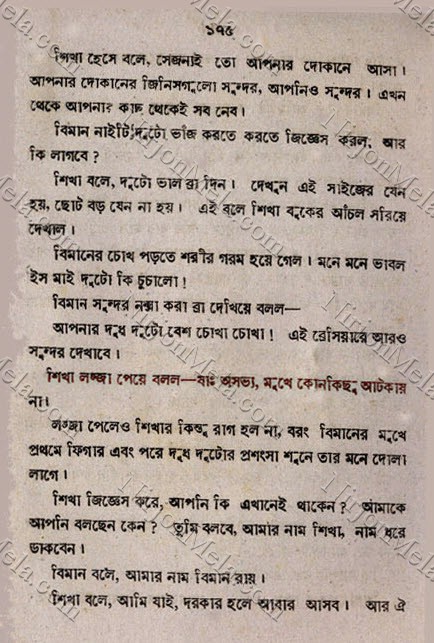 ১৭৫
শিখা হেসে বলে, সেজন্যই তো আপনার দোকানে আসা।
আপনার দোকানের জিনিসগুলো সুন্দর, আপনিও সুন্দর। এখন
থেকে আপনার কাছ থেকেই সব নেব।
বিমান নাইটি দুটো ভাঁজ করতে করতে জিজ্ঞেস করল, আর
কি লাগবে?
শিখা বলে, দুটো ভাল ব্রা দিন। দেখুন এই সাইজের যেন
হয়, ছোট বড় যেন না হয়। এই বলে শিখা বুকের আঁচল সরিয়ে
দেখাল।
বিমানের চোখ পড়তে শরীর গরম হয়ে গেল। মনে মনে ভাবল
ইস মাই দুটো কি চুচালো!
বিমান সুন্দর নক্সা করা ব্রা দেখিয়ে বলল—
আপনার দুধ দুটো বেশ চোখা চোখা! এই ব্রেসিয়ারে আরও
সুন্দর দেখাবে।
শিখা লজ্জা পেয়ে বলল—যাঃ অসভ্য, মুখে কোনকিছু আটকায়
না।
লজ্জা পেলেও শিখার কিন্তু রাগ হল না, বরং বিমানের মুখে
প্রথমে ফিগার এবং পরে দুধ দুটোর প্রশংসা শুনে তার মনে দোলা
লাগে।
শিখা জিজ্ঞেস করে, আপনি কি এখানেই থাকেন? আমাকে
আপনি বলছেন কেন? তুমি বলবে, আমার নাম শিখা, নাম ধরে
ডাকবেন।
বিমান বলে, আমার নাম বিমান রায়।
শিখা বলে, আমি যাই, দরকার হলে আবার আসব। আর ঐ
NirjonMela.com